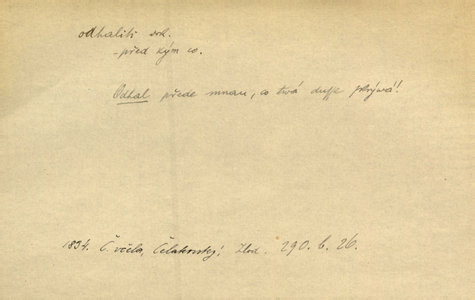 odhaliti dok.
- před kým co.
Odhal přede mnau, co twá duſſe pokrývá!
1834. Č. včela, Čelakovský, Zlod. 290. b. 26.